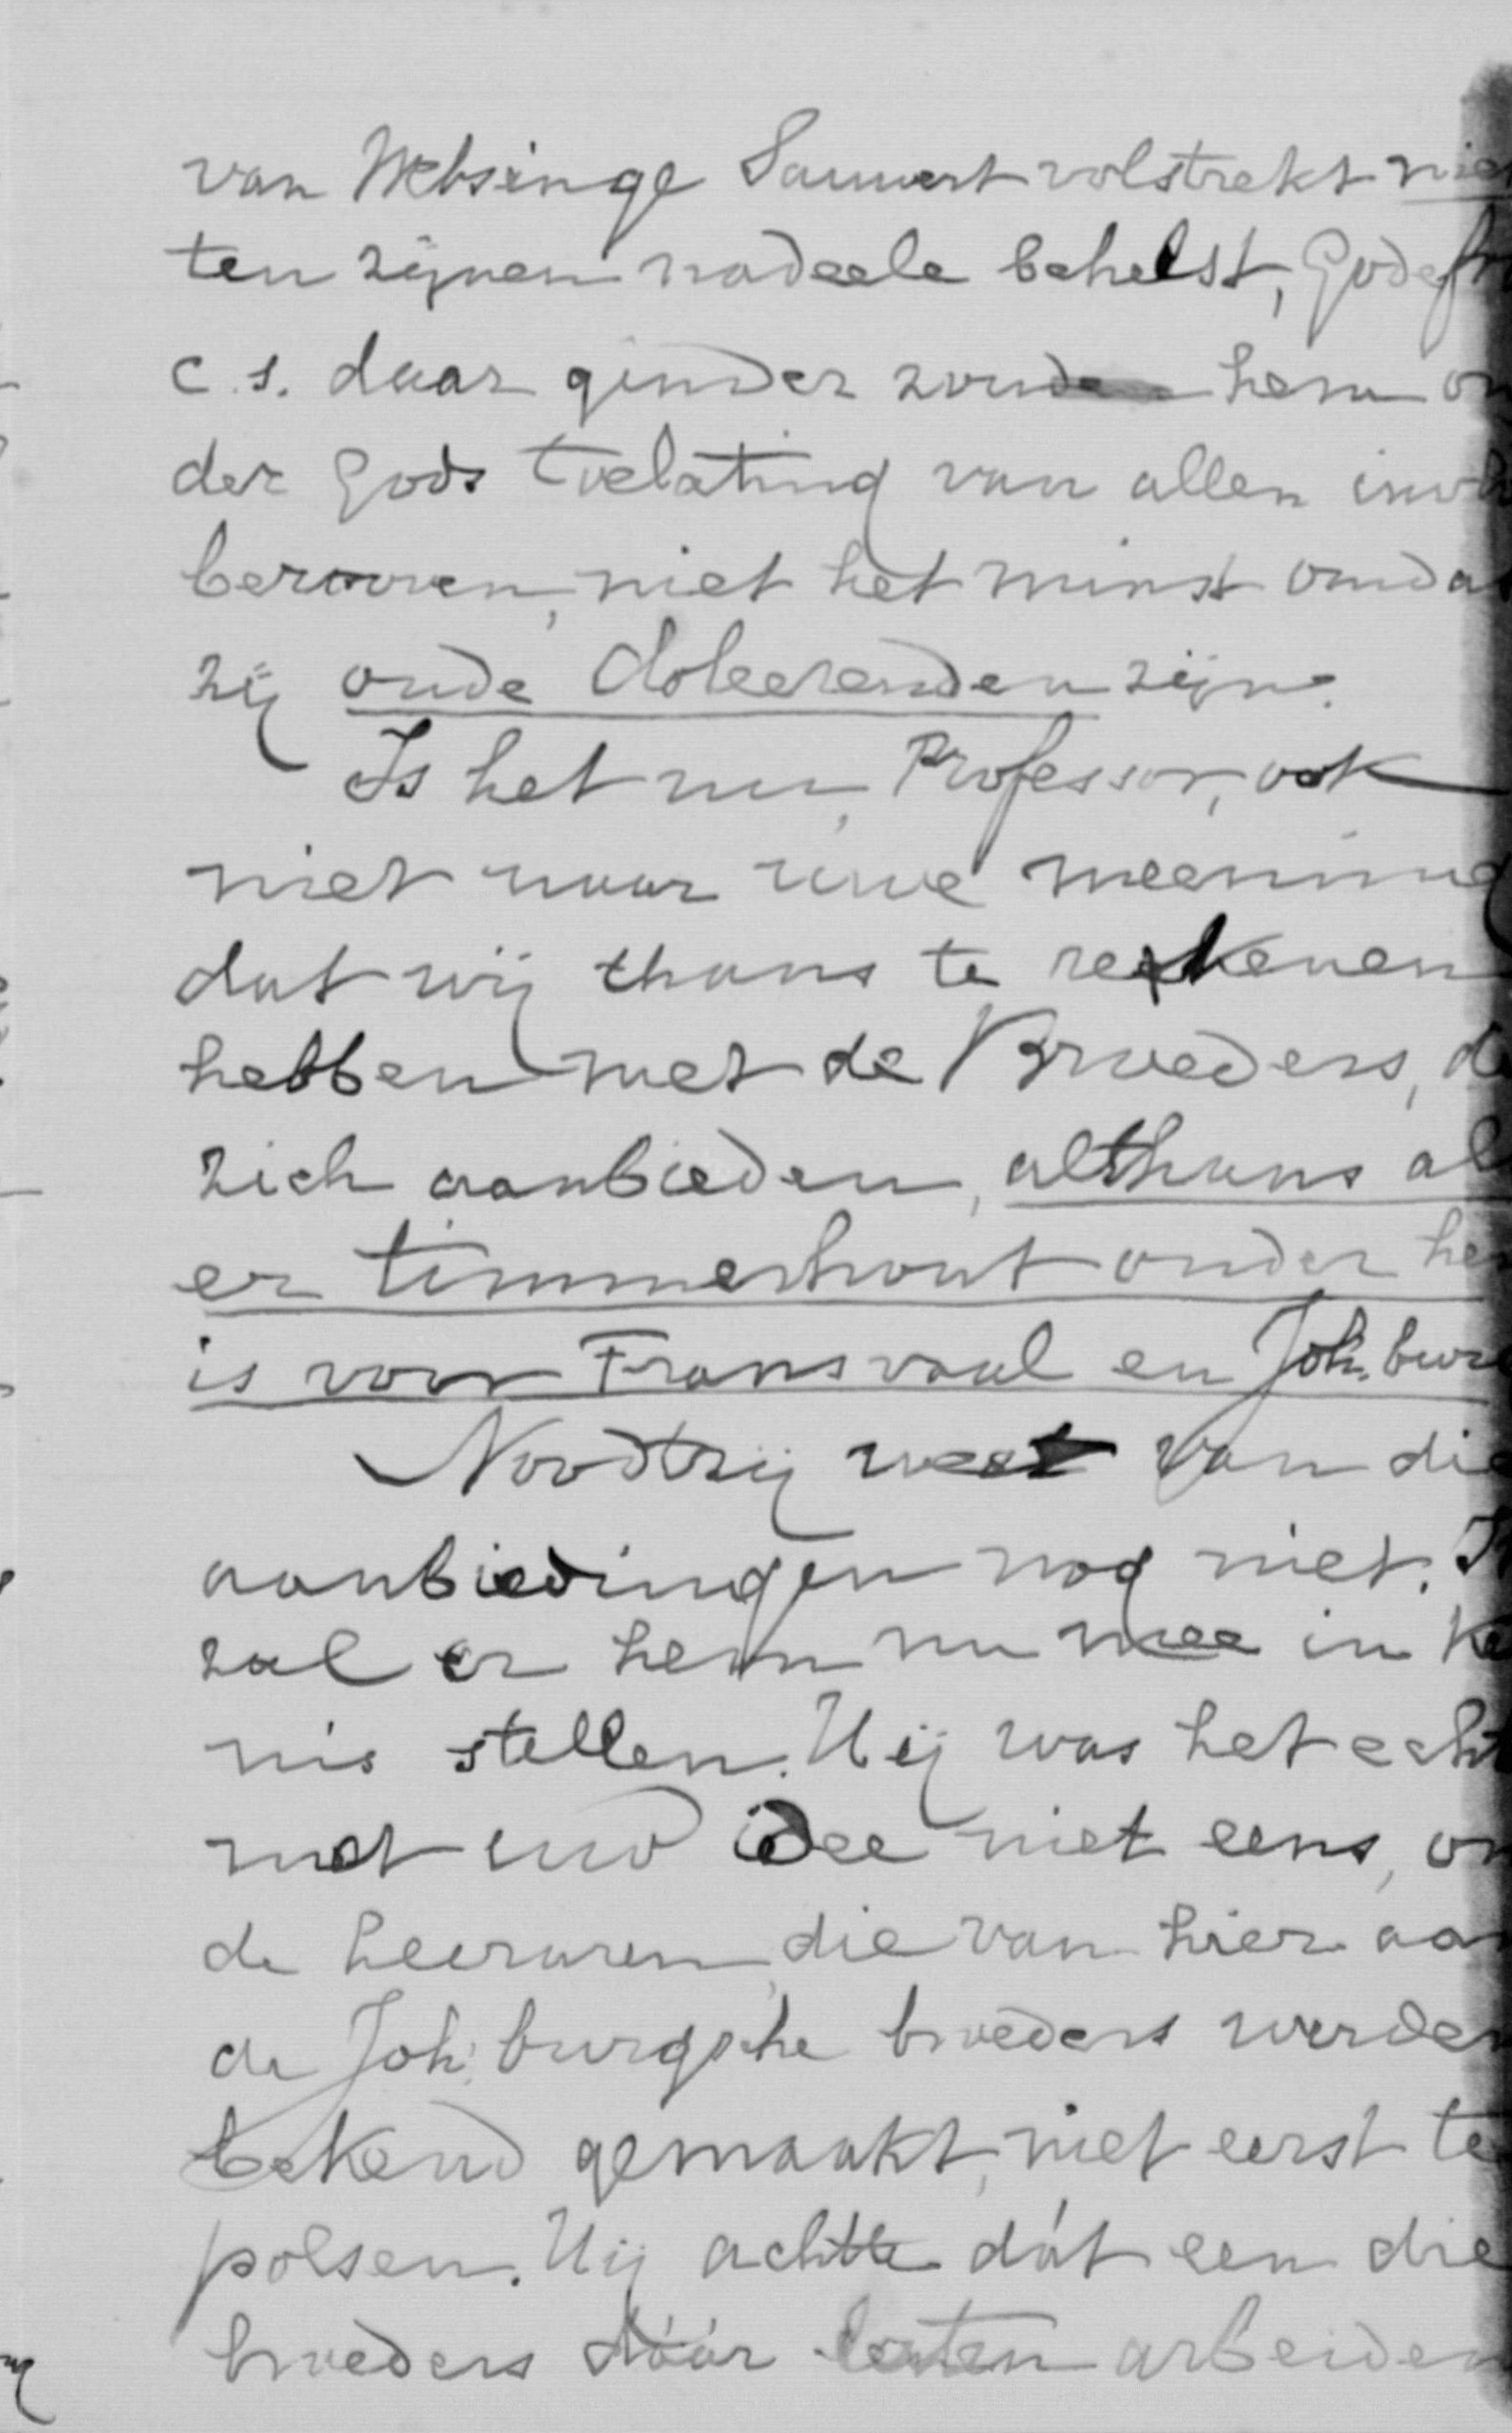 van Welsinge Sauwert volstrekt niet
ten zijnen nadeele behelst, Godefr
c.s. daar ginder zouden hem on
der Gods toelating van allen invl
berooven, niet het minst omdat
zij oude doleerenden zijn.
Is het nu, Professor, ook
niet naar uwe meening
dat wij thans te rekenen
hebben met de Broeders, d
zich aanbieden, althans al
er timmerhout onder hen
is voor Transvaal en Joh.burg
Noodtzij weet van die
aanbiedingen nog niet. I
zal er hem nu mee in ke
nis stellen. Hij was het echt
met uw idee niet eens, om
de heeraren, die van hier aan
de Joh.burgsche broeders werden
bekend gemaakt, niet eerst te
polsen. Hij achtte dát een die
broeders dáár laten arbeiden